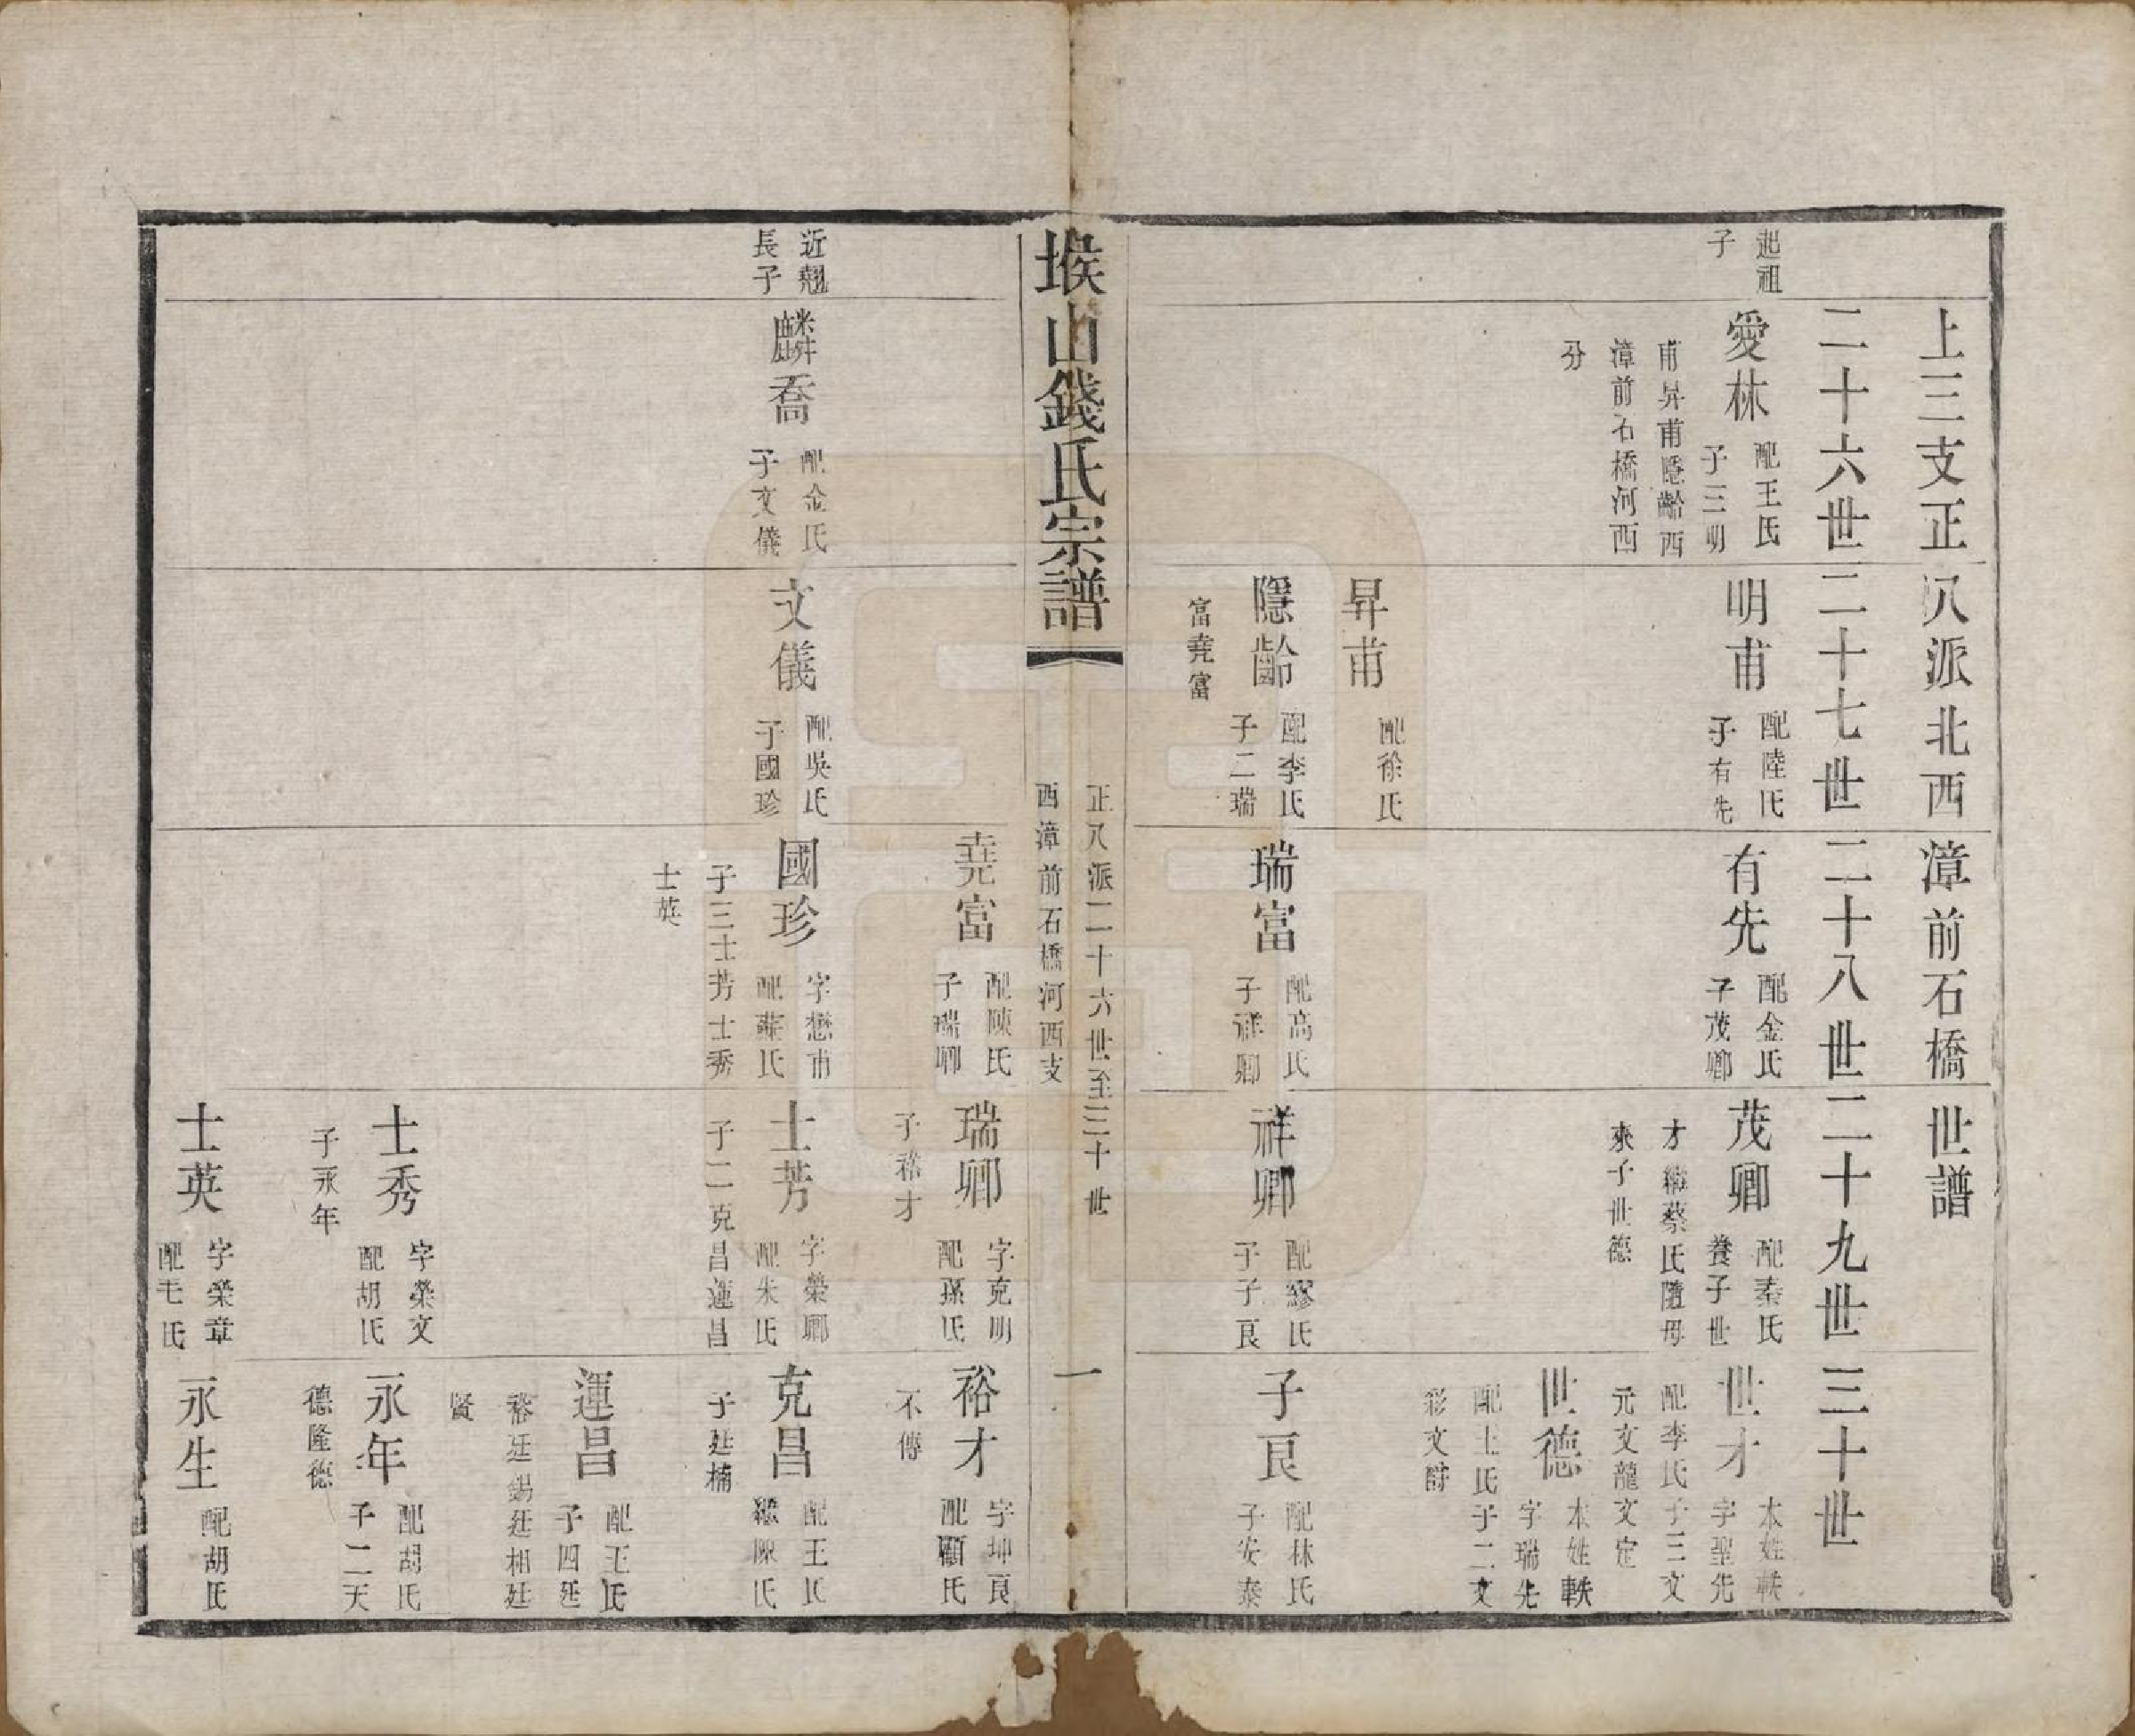 上三支正八派北西漳前石橋世譜
二十六世
二十七世
二十八世
二十九世
三十世
起祖
子
愛林
配王氏
子三明
甫昇甫隱齡西
漳前石橋河西
分
明甫
配陸氏
子有先
昇甫
配徐氏
隱齡
配李氏
子二瑞
富堯富
有先
配金氏
子茂卿
瑞富
配高氏
子祥卿
茂卿
配秦氏
養子世
才繼蔡氏隨母
來子世德
祥卿
配繆氏
子子良
世才
本姓軼
字聖先
配李氏子三文
元文龍文定
世德
本姓軼
字瑞先
配王氏子二文
彩文尉
子良
配林氏
子安泰
堠山錢氏宗譜
正八派二十六世至三十世
西漳前石橋河西支
一
近翹
長子
麟喬
配金氏
子文儀
文儀
配吳氏
子國珍
堯富
配陳氏
子瑞卿
國珍
字懋甫
配蘇氏
子三士芳士秀
士英
瑞卿
字克明
配孫氏
子裕才
士芳
字榮卿
配朱氏
子二克昌運昌
士秀
字榮文
配胡氏
子永年
士英
字榮章
配毛氏
裕才
字坤良
配顧氏
不傳
克昌
配王氏
繼陳氏
子廷楠
運昌
配王氏
子四廷
裕廷錫廷相廷
賢
永年
配胡氏
子二天
德隆德
永生
配胡氏